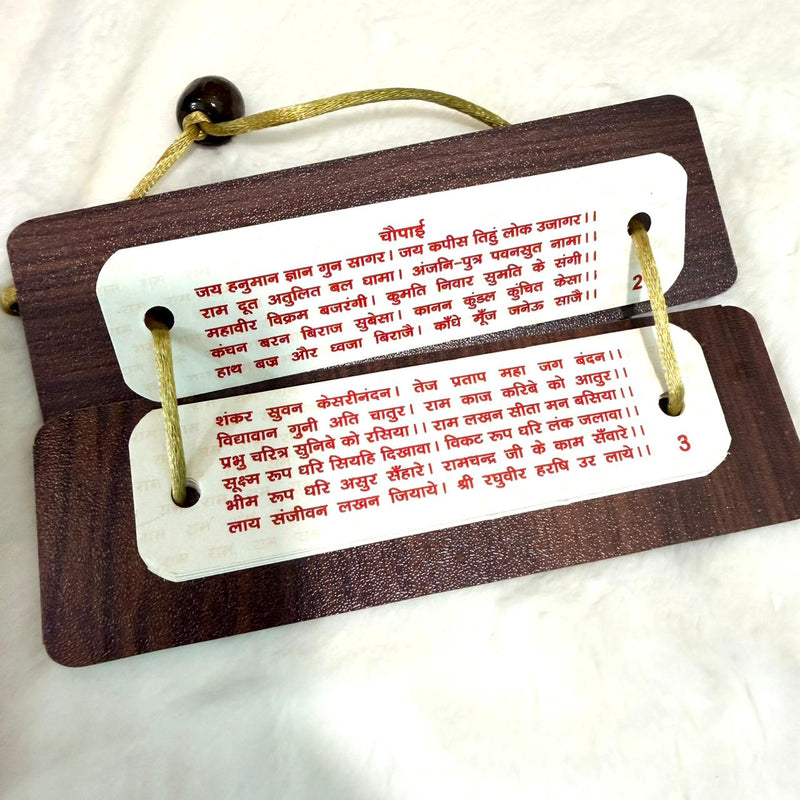 चौपाई
जय हनुमान ज्ञान गुन सागर। जय कपीस तिहुं लोक उजागर।।
राम दूत अतुलित बल धामा। अंजनि-पुत्र पवनसुत नामा।।
महावीर विक्रम बजरंगी। कुमति निवार सुमति के संगी।।
कंचन बरन बिराज सुबेसा। कानन कुंडल कुंचित केसा।।
हाथ बज्र और ध्वजा बिराजै। काँधे मूँज जनेऊ साजै।।
2
शंकर सुवन केसरीनंदन। तेज प्रताप महा जग बंदन।।
विद्यावान गुनी अति चातुर। राम काज करिबे को आतुर।।
प्रभु चरित्र सुनिबे को रसिया।। राम लखन सीता मन बसिया।।
सूक्ष्म रूप धरि सियहि दिखावा। विकट रूप धरि लंक जलावा।।
भीम रूप धरि असुर सँहारे। रामचन्द्र जी के काम सँवारे।।
लाय संजीवन लखन जियाये। श्री रघुवीर हरषि उर लाये।।
3